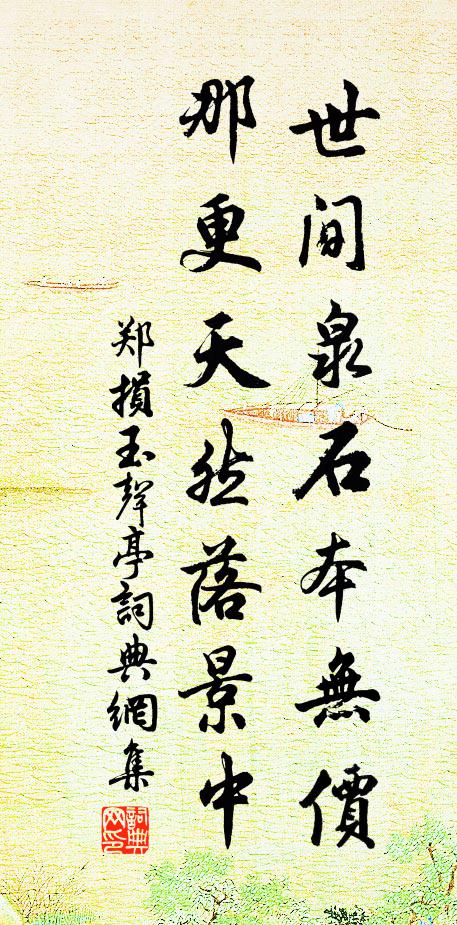 世间泉石本無價
那更天然落景中
郑損玉聲亭詞典網集
詞典網印